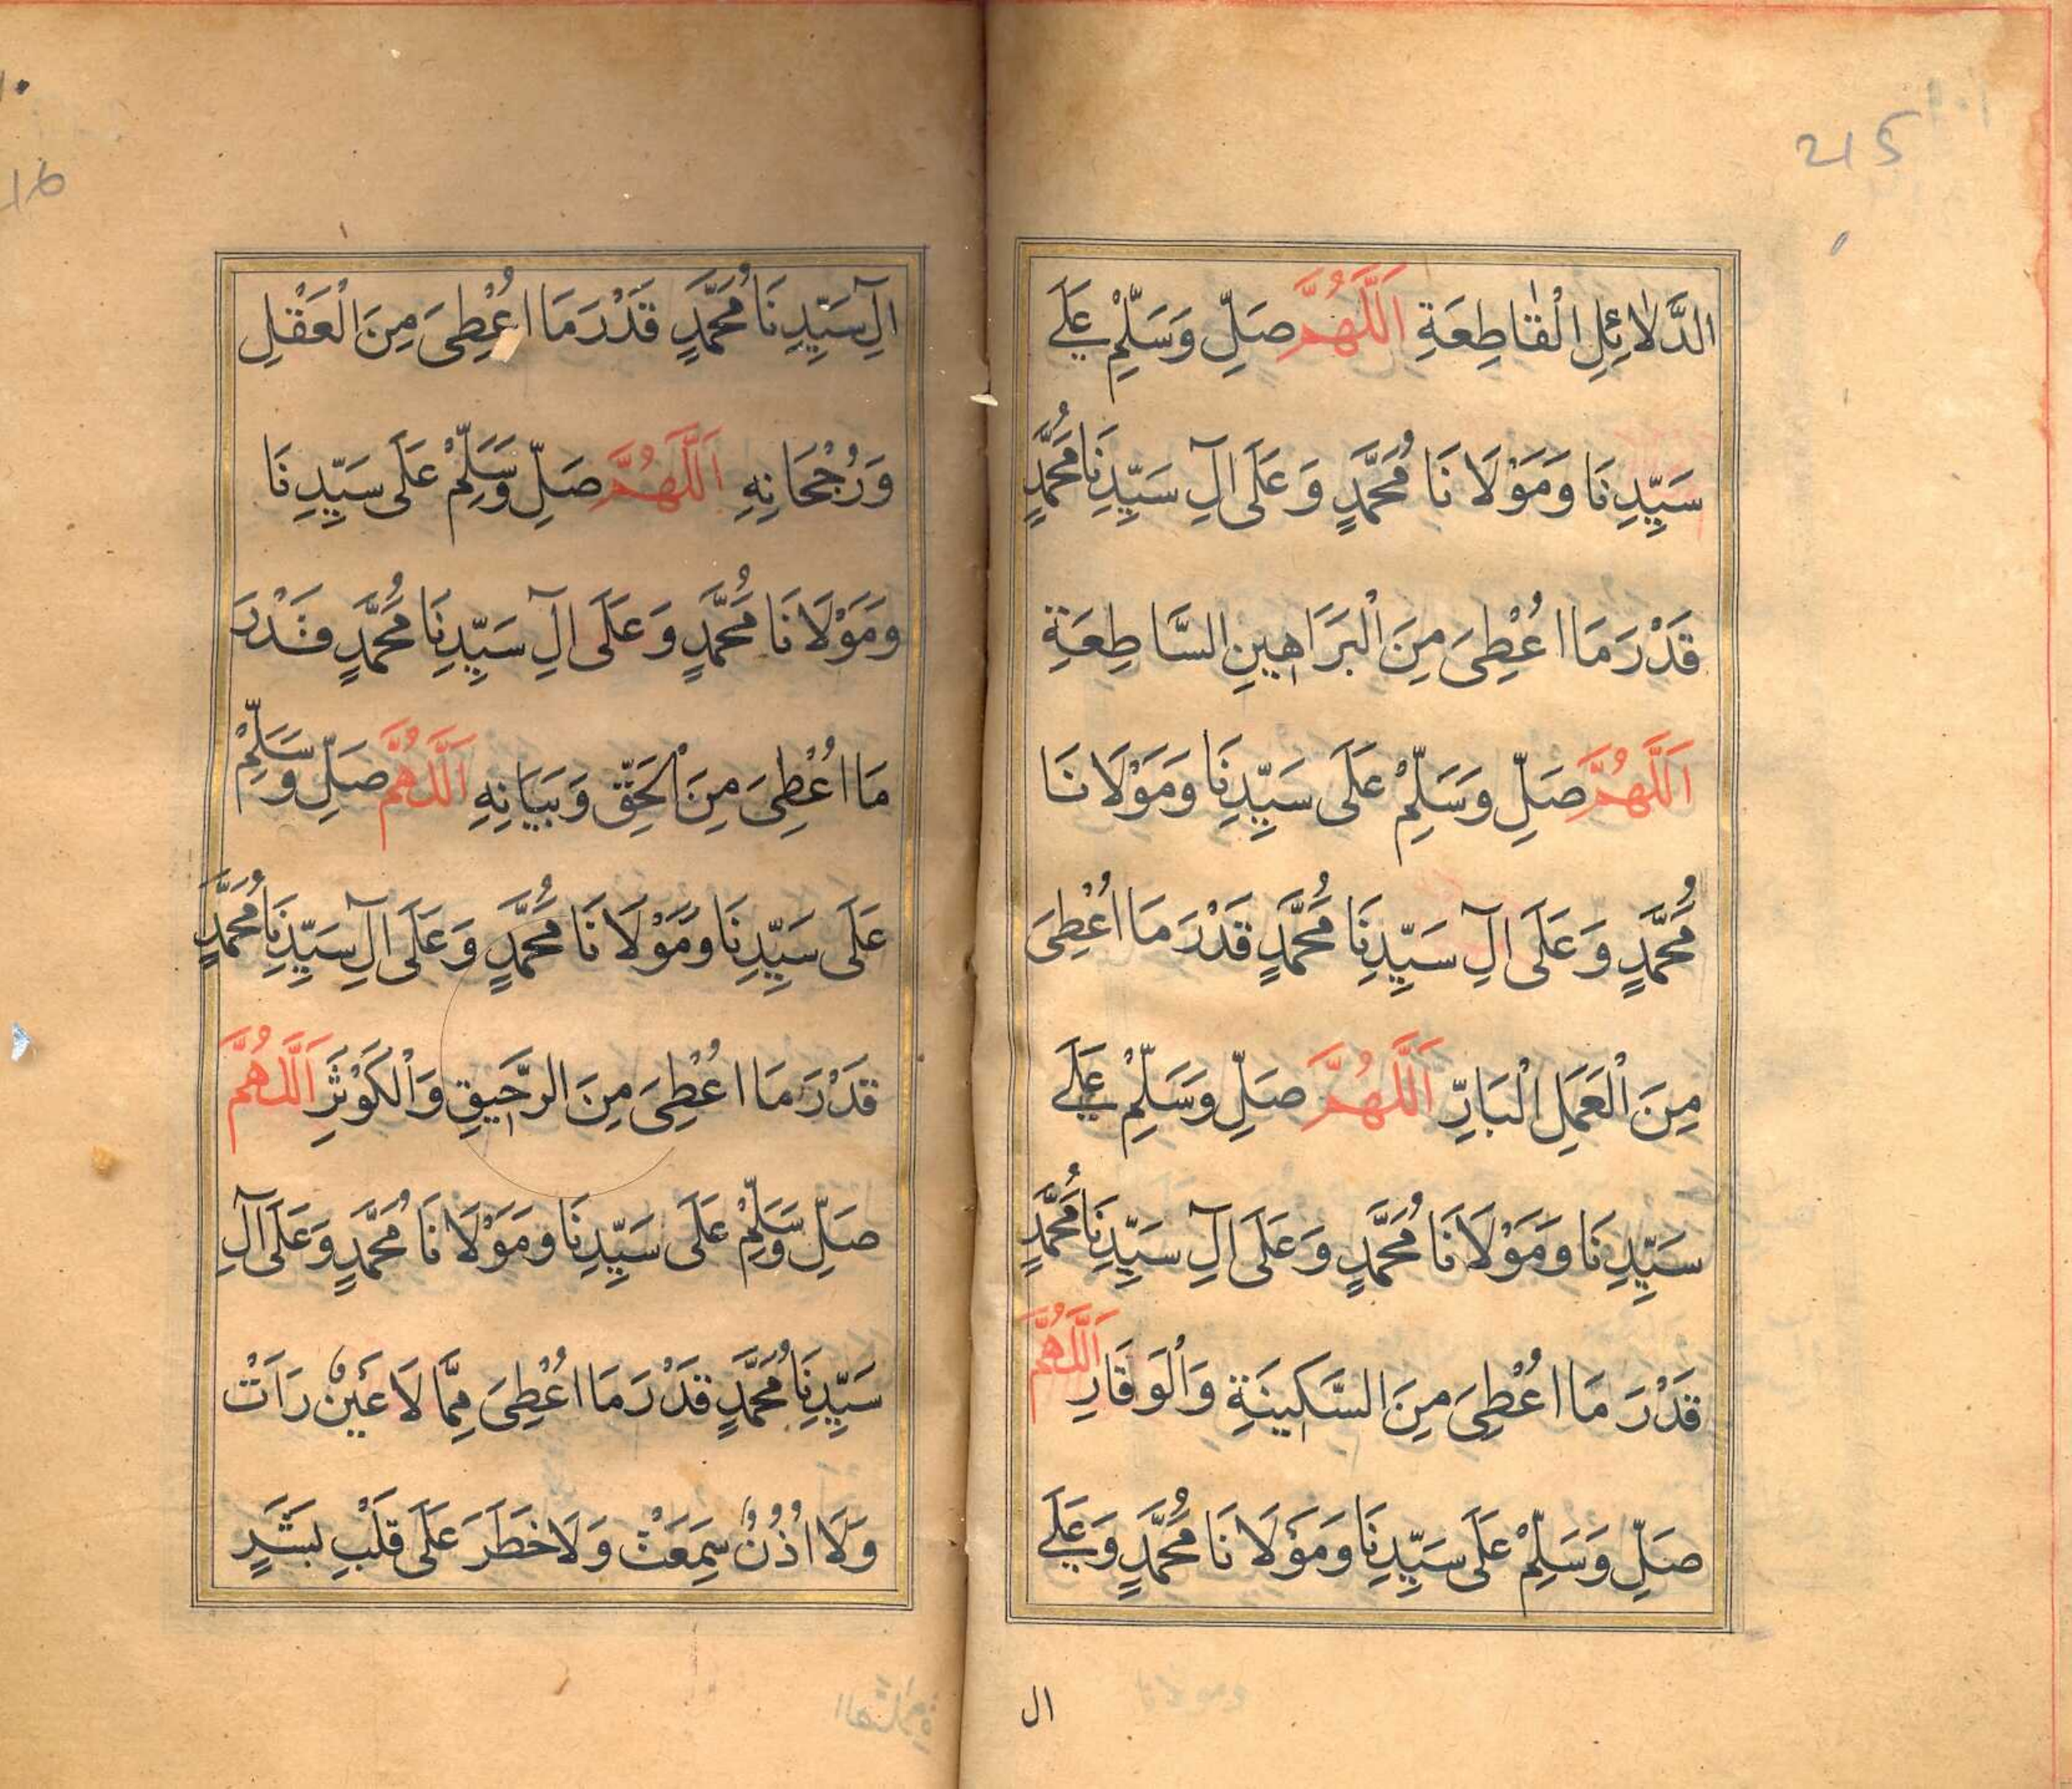 215
الدَّلَائِلِ الْقَاطِعَةِ اَللّٰهُمَّ صَلِّ وَسَلِّمْ عَلَى
سَيِّدِنَا وَمَوْلَانَا مُحَمَّدٍ وَعَلَى اٰلِ سَيِّدِنَا مُحَمَّدٍ
قَدْرَ مَا اُعْطِىَ مِنَ الْبَرَاهِينِ السَّاطِعَةِ
اَللّٰهُمَّ صَلِّ وَسَلِّمْ عَلَى سَيِّدِنَا وَمَوْلَانَا
مُحَمَّدٍ وَعَلَى اٰلِ سَيِّدِنَا مُحَمَّدٍ قَدْرَ مَا اُعْطِىَ
مِنَ الْعَمَلِ الْبَارِّ اَللّٰهُمَّ صَلِّ وَسَلِّمْ عَلَى
سَيِّدِنَا وَمَوْلَانَا مُحَمَّدٍ وَعَلَى اٰلِ سَيِّدِنَا مُحَمَّدٍ
قَدْرَ مَا اُعْطِىَ مِنَ السَّكِينَةِ وَالْوَقَارِ اَللّٰهُمَّ
صَلِّ وَسَلِّمْ عَلَى سَيِّدِنَا وَمَوْلَانَا مُحَمَّدٍ وَعَلَى
ال
16
اٰلِ سَيِّدِنَا مُحَمَّدٍ قَدْرَ مَا اُعْطِىَ مِنَ الْعَقْلِ
وَرُجْحَانِهِ اَللّٰهُمَّ صَلِّ وَسَلِّمْ عَلَى سَيِّدِنَا
وَمَوْلَانَا مُحَمَّدٍ وَعَلَى اٰلِ سَيِّدِنَا مُحَمَّدٍ قَدْرَ
مَا اُعْطِىَ مِنَ الْحَقِّ وَبَيَانِهِ اَللّٰهُمَّ صَلِّ وَسَلِّمْ
عَلَى سَيِّدِنَا وَمَوْلَانَا مُحَمَّدٍ وَعَلَى اٰلِ سَيِّدِنَا مُحَمَّدٍ
قَدْرَ مَا اُعْطِىَ مِنَ الرَّحِيقِ وَالْكَوْثَرِ اَللّٰهُمَّ
صَلِّ وَسَلِّمْ عَلَى سَيِّدِنَا وَمَوْلَانَا مُحَمَّدٍ وَعَلَى اٰلِ
سَيِّدِنَا مُحَمَّدٍ قَدْرَ مَا اُعْطِىَ مِمَّا لَا عَيْنٌ رَاَتْ
وَلَا اُذُنٌ سَمِعَتْ وَلَا خَطَرَ عَلَى قَلْبِ بَشَرٍ